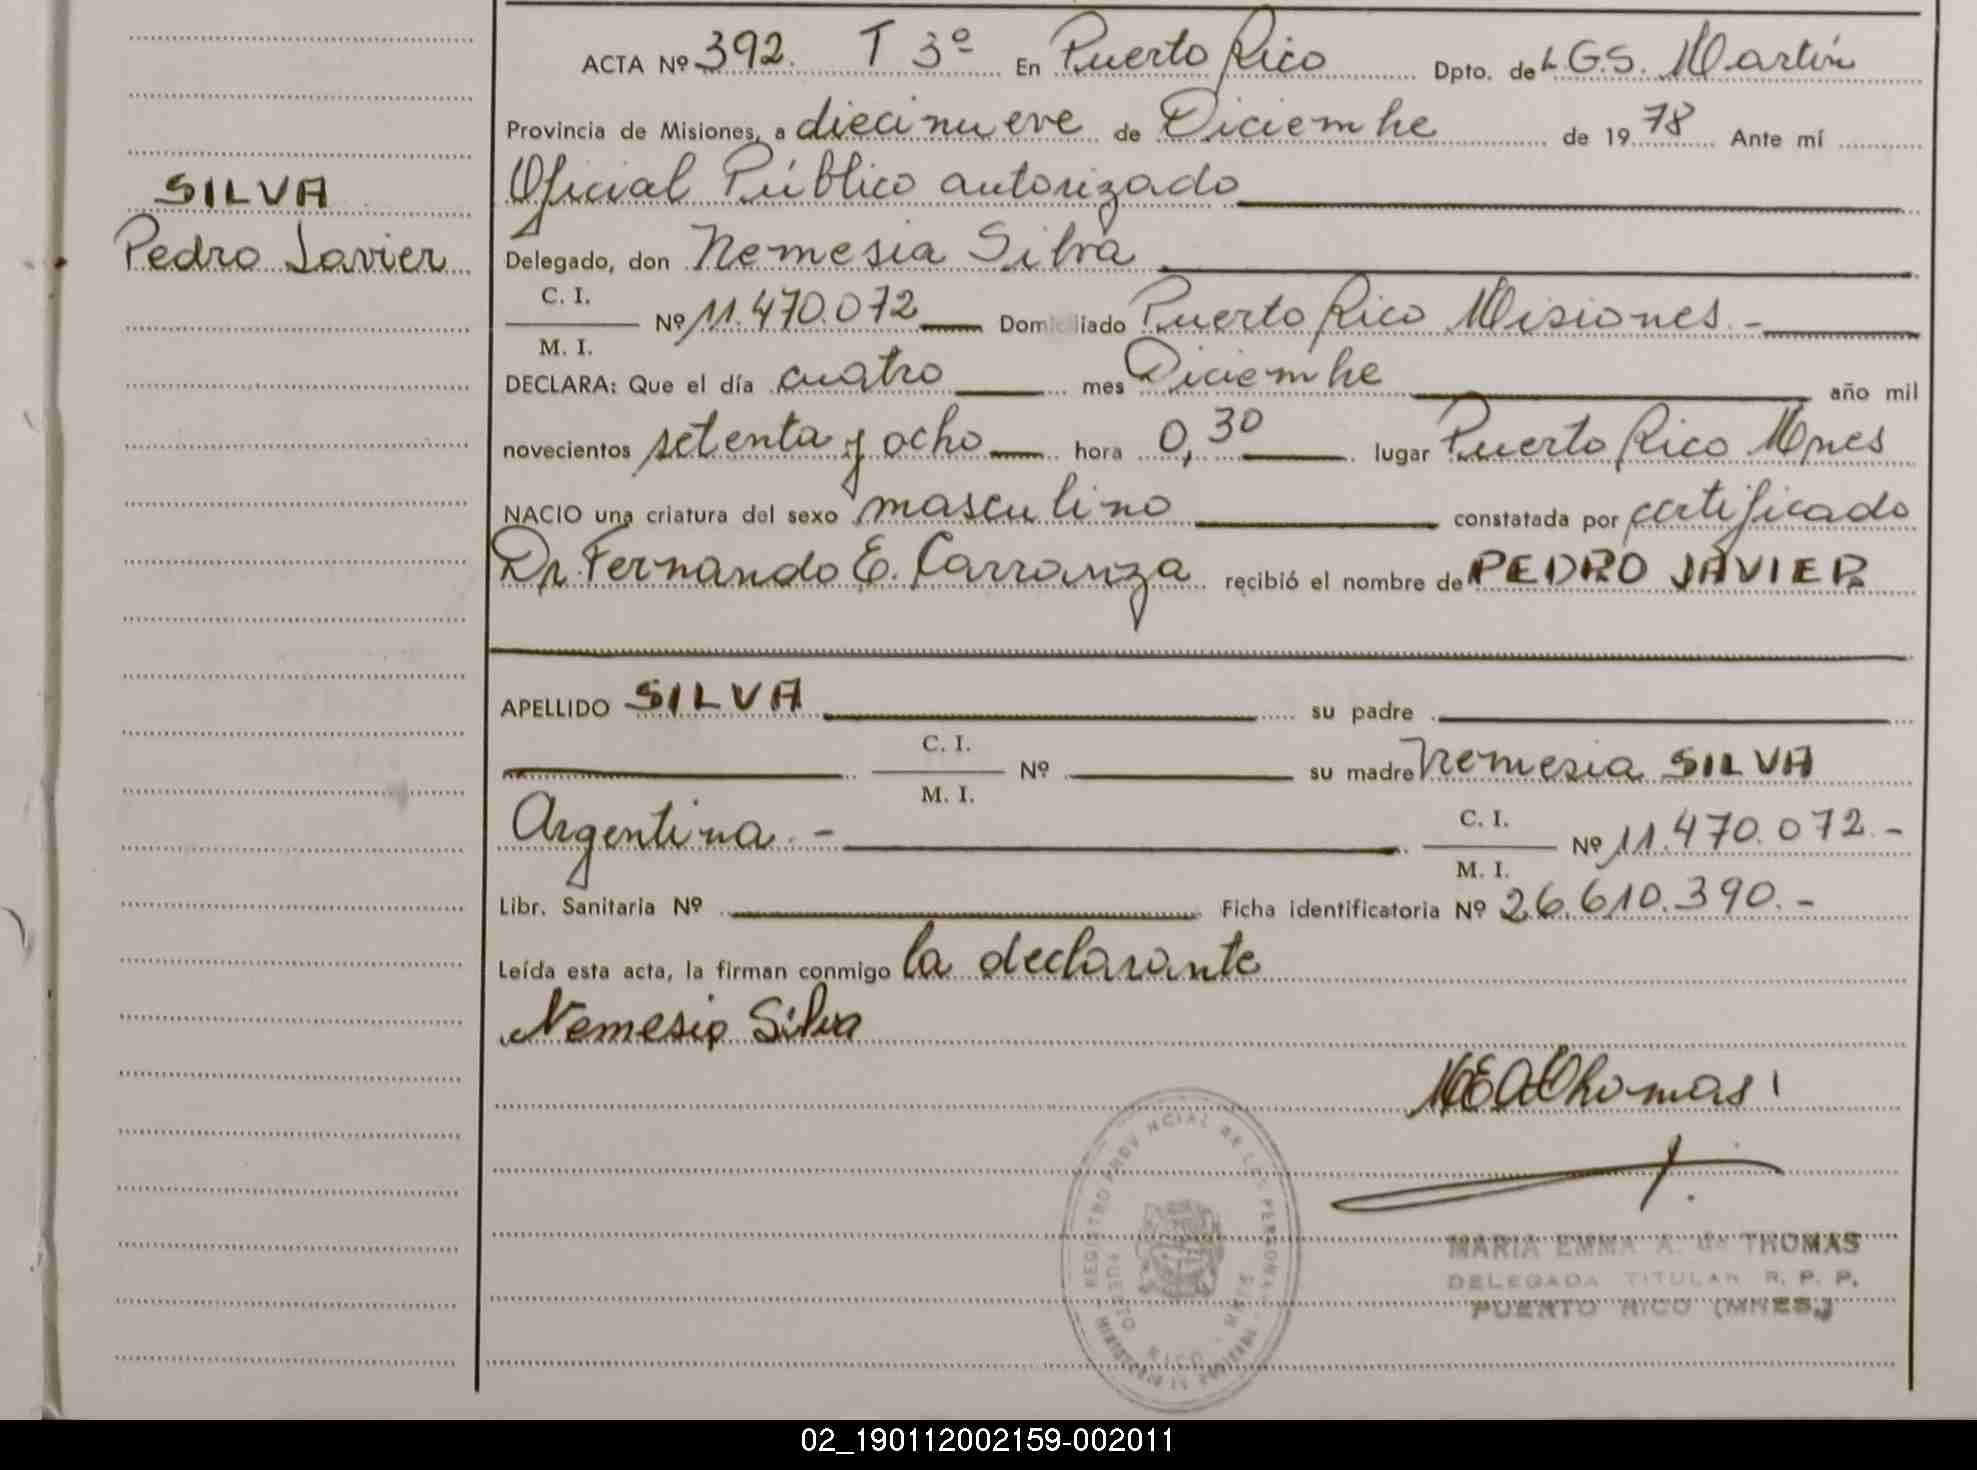 ACTA Nº 392. T 3º En Puerto Rico Dpto. de L.G.S. Martín
Provincia de Misiones, a diecinueve de Diciembre de 1978 Ante mí
Oficial Público autorizado
SILVA
Pedro Javier
Delegado, don Nemesia Silva
C. I.
M. I.
Nº 11.470.072 Domiciliado Puerto Rico Misiones.-
DECLARA: Que el día cuatro mes Diciembre año mil
novecientos setenta y ocho hora 0,30 lugar Puerto Rico Mnes
NACIO una criatura del sexo masculino constatada por certificado
Dr. Fernando E. Carranza recibió el nombre de PEDRO JAVIER
APELLIDO SILVA su padre
C. I.
M. I.
Nº su madre Nemesia SILVA
Argentina.- C. I.
M. I.
Nº 11.470.072.-
Libr. Sanitaria Nº Ficha identificatoria Nº 26.610.390.-
Leída esta acta, la firman conmigo la declarante
Nemesia Silva
MEAThomas
REGISTRO PROVINCIAL DE LAS PERSONAS
PUERTO RICO - MNES
MARIA EMMA A. de THOMAS
DELEGADA TITULAR R. P. P.
PUERTO RICO (MNES.)
02_190112002159-002011